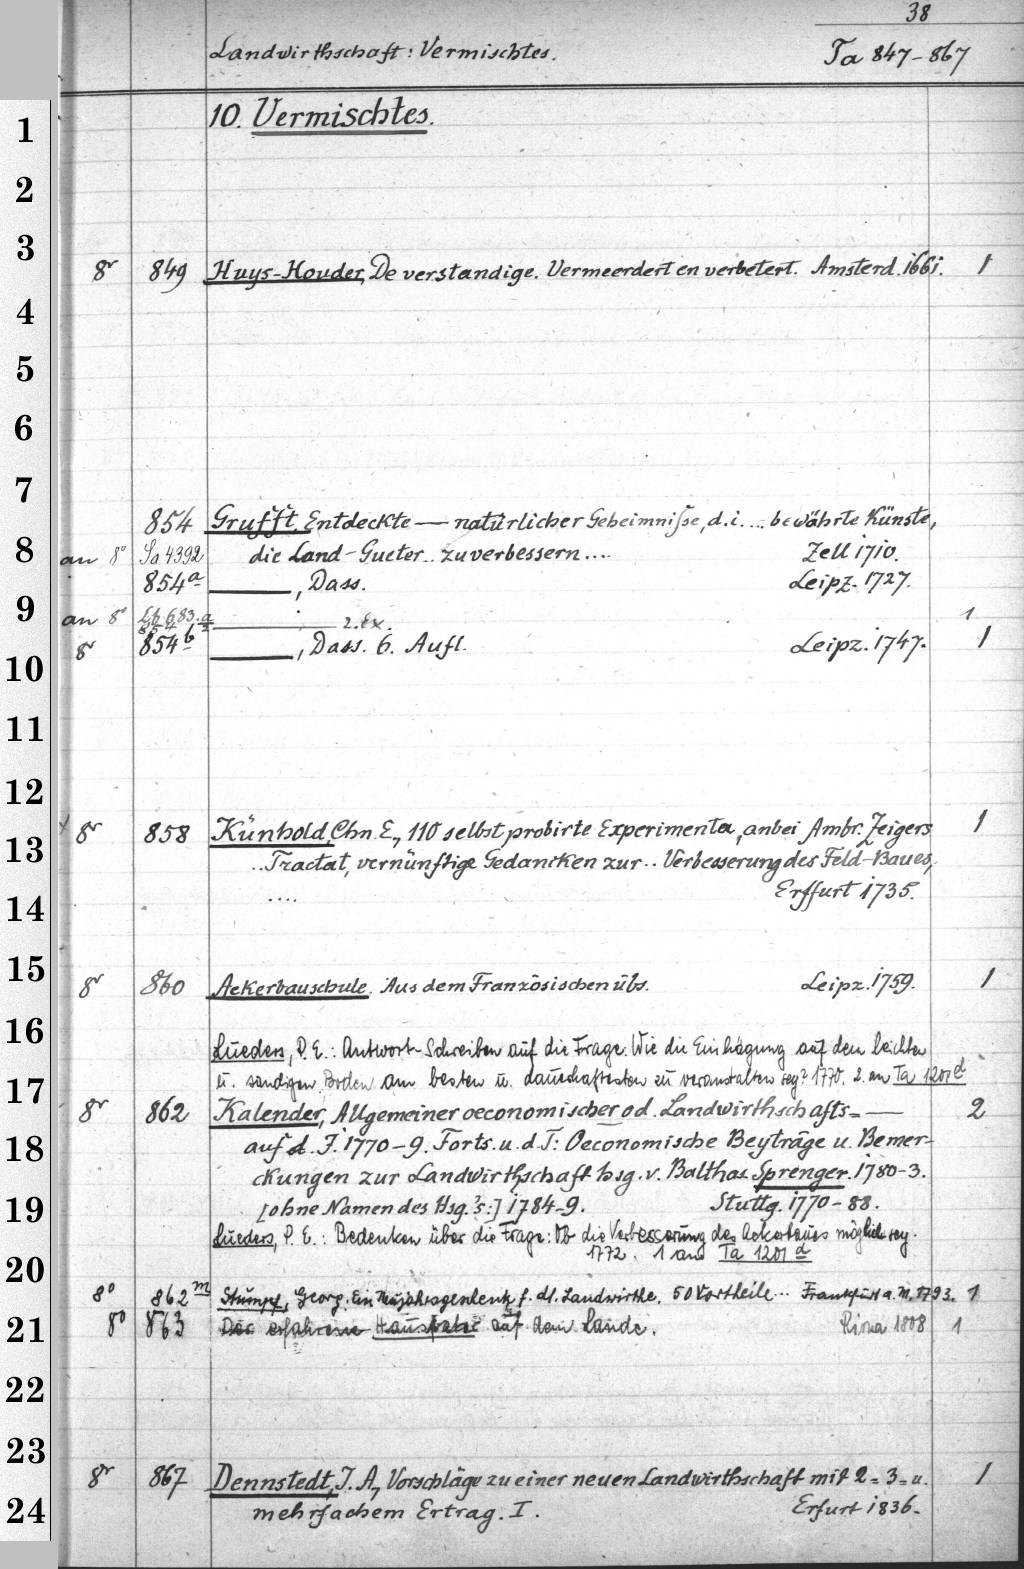 38
Landwirthschaft: Vermischtes. Ta 847-867
10. Vermischtes.
1
2
3
8r 849 Huys-Houder, De verstandige. Vermeerdert en verbetert. Amsterd. 1661. 1
4
5
6
7
854 Grufft, Entdeckte — natürlicher Geheimnisse, d.i. ... bewährte Künste,
8
an 8° Sa 4392 die Land-Gueter .. zu verbessern .... Zell 1710.
854a ———, Dass. Leipz. 1727.
9
an 8° Lb 683.a ——— 2. Ex. 1
8r 854b ———, Dass. 6. Aufl. Leipz. 1747. 1
10
11
12
8r 858 Künhold, Chn. E., 110 selbst probirte Experimenta, anbei Ambr. Zeigers 1
13
.. Tractat, vernünftige Gedancken zur .. Verbesserung des Feld-Baues,
.... Erffurt 1735.
14
15
8r 860 Ackerbauschule. Aus dem Französischen übs. Leipz. 1759. 1
16
Lueders, P. E.: Antwort-Schreiben auf die Frage: Wie die Einhägung auf den leichten
17
u. sandigen Boden am besten u. dauerhaftesten zu veranstalten sey? 1770. 2. an Ta 1201 d
8r 862 Kalender, Allgemeiner oeconomischer od. Landwirthschafts- — 2
18
auf d. J. 1770-9. Forts. u. d. T: Oeconomische Beyträge u. Bemer-
ckungen zur Landwirthschaft hsg. v. Balthas. Sprenger. 1780-3.
19
[ohne Namen des Hsg.'s:] 1784-9. Stuttg. 1770-88.
Lueders, P. E.: Bedenken über die Frage: Ob die Verbesserung des Ackerbaues möglich sey.
20
1772. 1 an Ta 1201 d
8° 862m Stumpf, Georg: Ein Neujahrsgeschenk f. dt. Landwirthe. 50 Vortheile... Frankfurt a. M. 1793. 1
21
8° 863 Der erfahrene Hausvater auf dem Lande. 1808 1
22
23
8r 867 Dennstedt, J. A., Vorschläge zu einer neuen Landwirthschaft mit 2- 3- u. 1
24
mehrfachem Ertrag. I. Erfurt 1836.